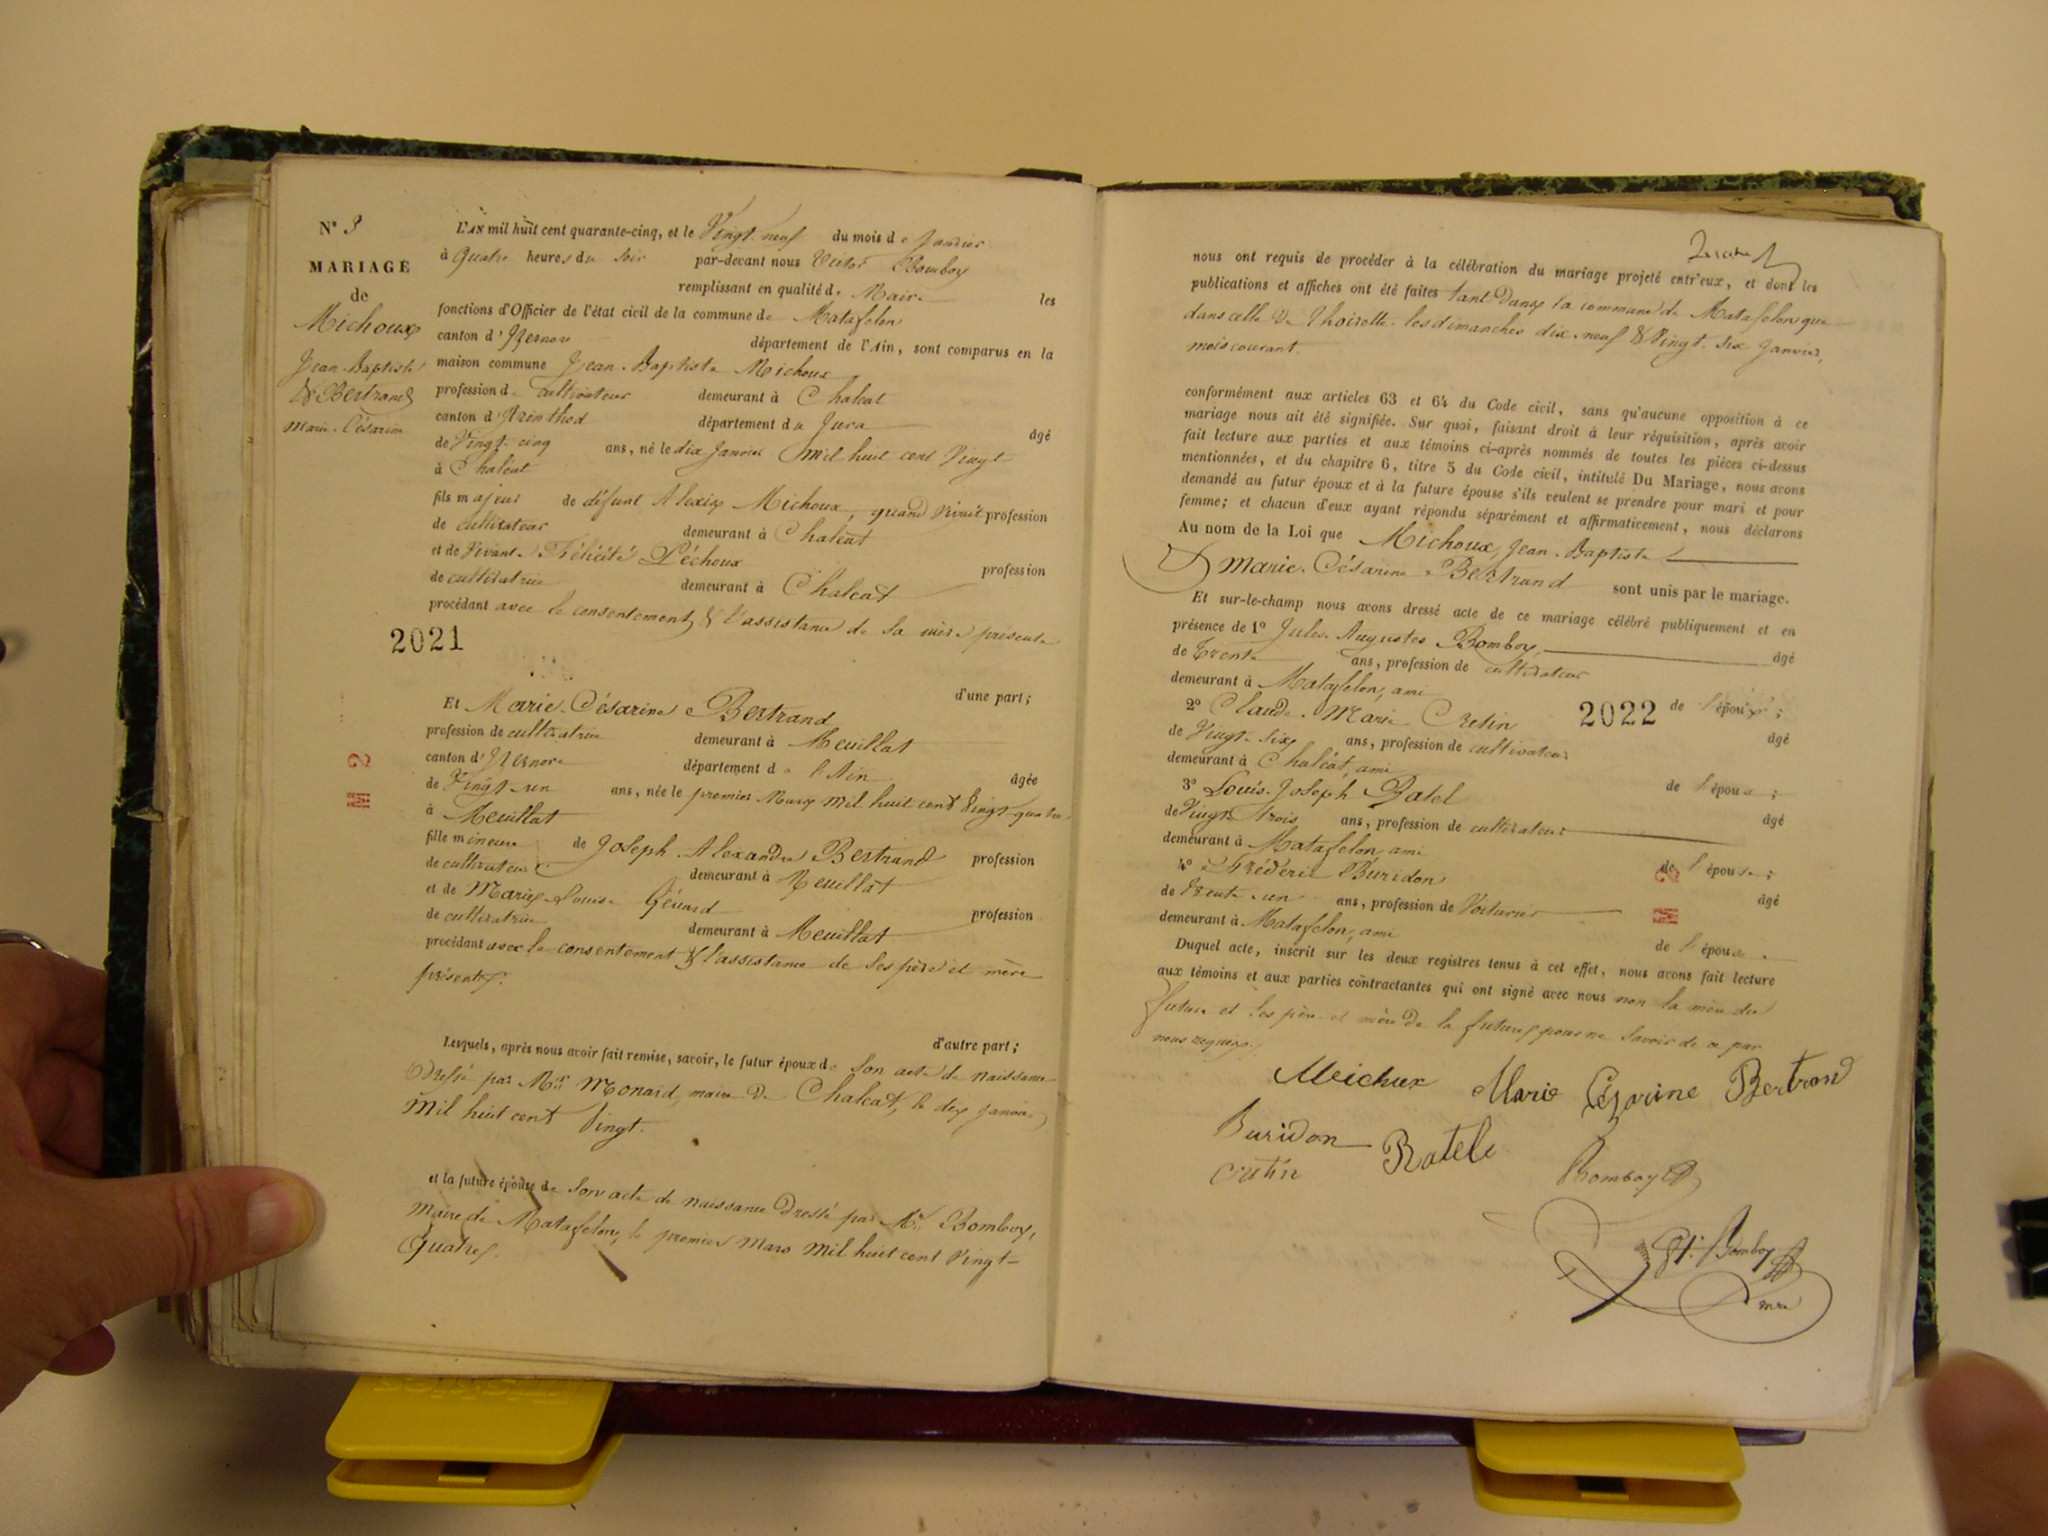 N° 3
MARIAGE
de
Michoux
Jean-Baptiste
& Bertrand
Marie-Césarine
L'AN mil huit cent quarante-cinq, et le Vingt-neuf du mois de Janvier
à quatre heures du soir par-devant nous Victor Bomboy
remplissant en qualité de Maire les
fonctions d'Officier de l'état civil de la commune de Matafelon
canton d'Izernore département de l'Ain, sont comparus en la
maison commune Jean-Baptiste Michoux
profession de cultivateur demeurant à Chaléat
canton d'Arinthod département du Jura âgé
de Vingt-cinq ans, né le dix Janvier Mil huit cent Vingt
à Chaléat
fils majeur de défunt Alexis Michoux, quand vivait profession
de cultivateur demeurant à Chaléat
et de vivante Félicité Péchoux profession
de cultivatrice demeurant à Chaléat
procédant avec le consentement & l'assistance de sa mère présente
2021
d'une part;
Et Marie-Césarine Bertrand
profession de cultivatrice demeurant à Meuillat
canton d'Izernore département de l'Ain âgée
de Vingt-un ans, née le premier Mars mil huit cent Vingt-quatre
à Meuillat
fille mineure de Joseph Alexandre Bertrand profession
de cultivateur demeurant à Meuillat
et de Marie-Louise Génard profession
de cultivatrice demeurant à Meuillat
procédant avec le consentement & l'assistance de ses père et mère
présents.
d'autre part;
Lesquels, après nous avoir fait remise, savoir, le futur époux de son acte de naissance
Dressé par Mr Monard, maire de Chaléat, le dix Janvier
Mil huit cent Vingt.
et la future épouse de son acte de naissance dressé par Mr Bomboy,
Maire de Matafelon, le premier Mars Mil huit cent Vingt-
quatre.
M 2
nous ont requis de procéder à la célébration du mariage projeté entr'eux, et dont les
publications et affiches ont été faites tant dans la commune de Matafelon que
dans celle de Thoirette les dimanches dix-neuf & Vingt-six Janvier,
mois courant.
conformément aux articles 63 et 64 du Code civil, sans qu'aucune opposition à ce
mariage nous ait été signifiée. Sur quoi, faisant droit à leur réquisition, après avoir
fait lecture aux parties et aux témoins ci-après nommés de toutes les pièces ci-dessus
mentionnées, et du chapitre 6, titre 5 du Code civil, intitulé Du Mariage, nous avons
demandé au futur époux et à la future épouse s'ils veulent se prendre pour mari et pour
femme; et chacun d'eux ayant répondu séparément et affirmativement, nous déclarons
Au nom de la Loi que Michoux, Jean-Baptiste
& Marie-Césarine Bertrand sont unis par le mariage.
Et sur-le-champ nous avons dressé acte de ce mariage célébré publiquement et en
présence de 1° Jules Augustes Bomboy, âgé
de Trente ans, profession de cultivateur
demeurant à Matafelon, ami de l'époux;
2° Claude-Marie Cretin 2022 âgé
de Vingt-six ans, profession de cultivateur
demeurant à Chaléat, ami de l'époux;
3° Louis-Joseph Ratel âgé
de Vingt-trois ans, profession de cultivateur
demeurant à Matafelon, ami de l'épouse;
4° Frédéric Buridon âgé
de Trente-un ans, profession de Voiturier
demeurant à Matafelon, ami de l'épouse.
M 2
Duquel acte, inscrit sur les deux registres tenus à cet effet, nous avons fait lecture
aux témoins et aux parties contractantes qui ont signé avec nous non la mère du
futur et les père et mère de la future pour ne savoir de ce par
nous requis.
Meichux Marie Césarine Bertrand
Buridon Ratel
Cretin Bomboy
Bomboy
mre